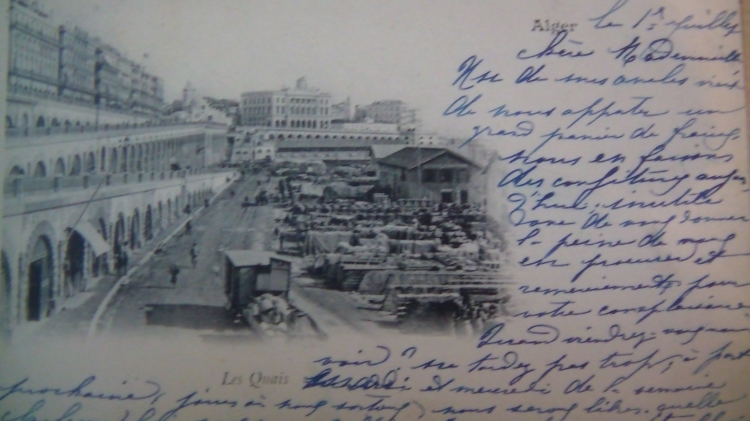 Alger
le 1er Juillet
Chère Mademoiselle
de mes oncles vient
de nous apporter un
grand panier de
nous en faisons
des confitures
inutile
donc de vous donner
la peine de nous
en procurer et
remerciements pour
votre complaisance
Quand viendrez-vous nous
voir? ne tardez pas trop, à part
Les Quais
mardi et mercredi de la semaine
prochaine, jours où nous sortons, nous serons libres. quelle